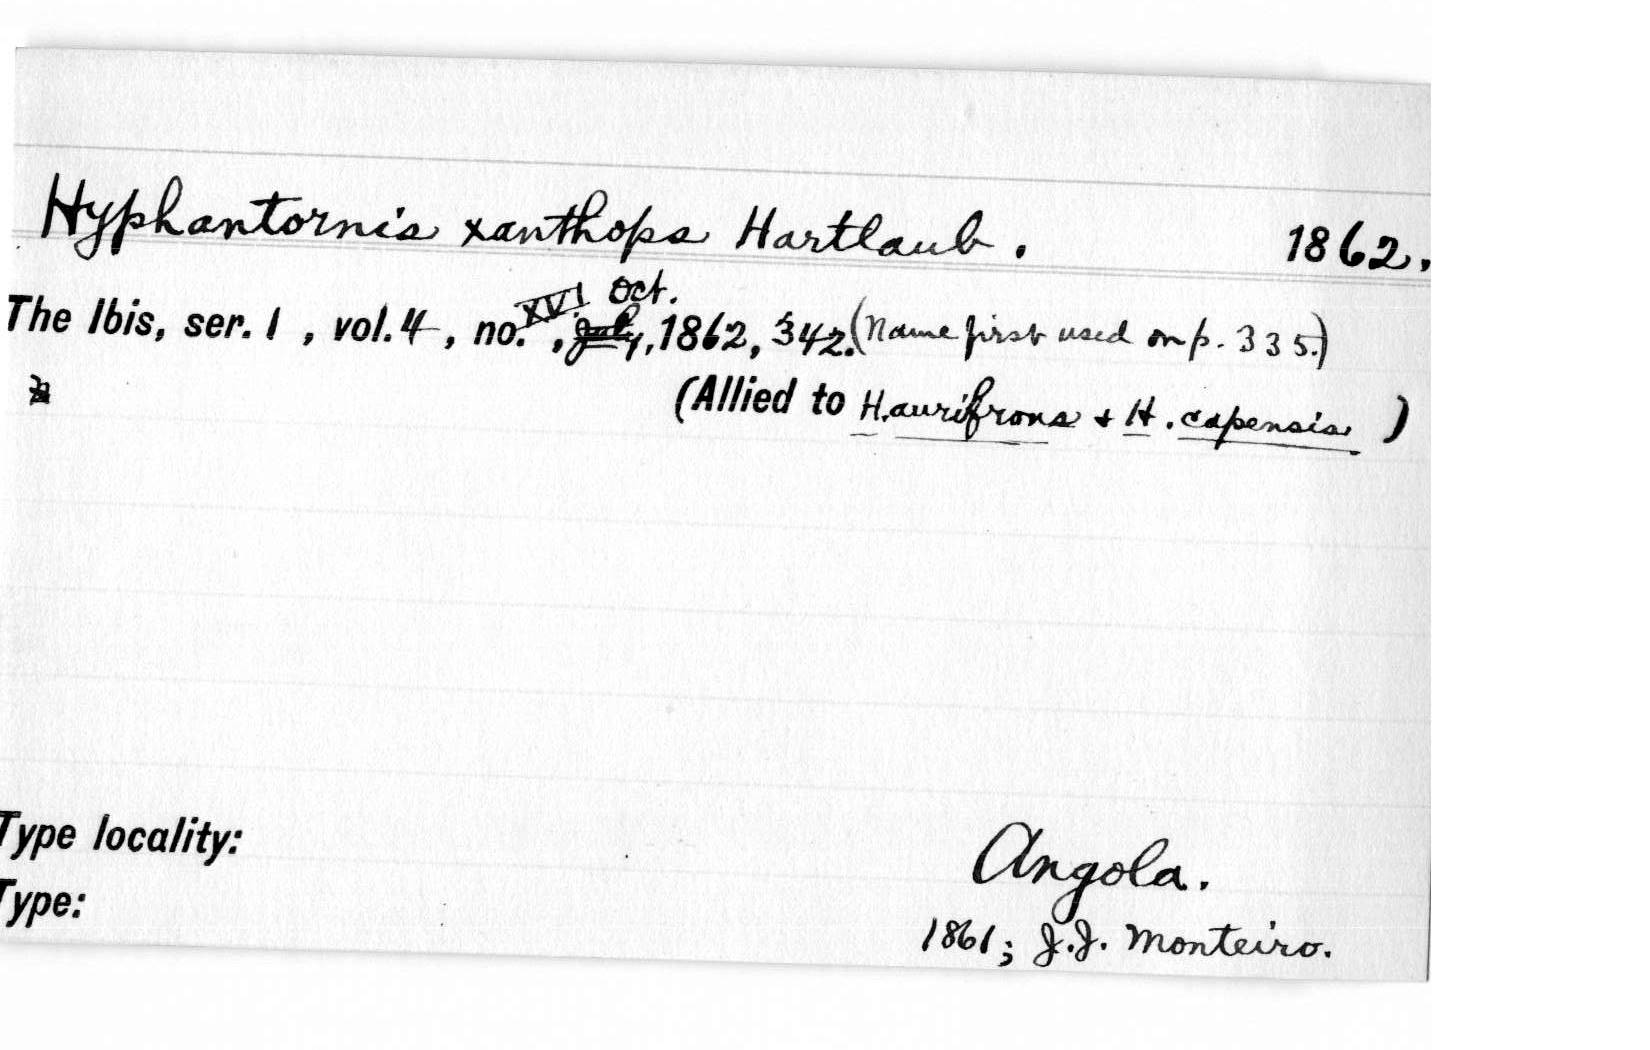 Hyphantornis xanthops Hartlaub. 1862.
The Ibis, ser. 1, vol. 4, no. XVI, July, Oct. 1862, 342. (Name first used on p. 335.)
(Allied to H. aurifrons + H. capensis)
Type locality: Angola.
Type: 1861; J.J. Monteiro.